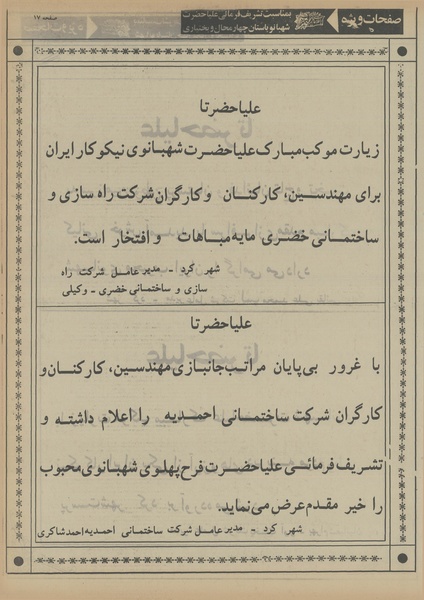 صفحات ویژه
بمناسبت تشریف فرمائی علیاحضرت
شهبانو باستان چهارمحال و بختیاری
صفحه ۱۷
علیاحضرتا
زیارت موکب مبارک علیاحضرت شهبانوی نیکوکار ایران
برای مهندسین، کارکنان و کارگران شرکت راه سازی و
ساختمانی خضری مایه مباهات و افتخار است.
شهر کرد - مدیر عامل شرکت راه
سازی و ساختمانی خضری - وکیلی
علیاحضرتا
با غرور بی‌پایان مراتب جانبازی مهندسین، کارکنان و
کارگران شرکت ساختمانی احمدیه را اعلام داشته و
تشریف فرمائی علیاحضرت فرح پهلوی شهبانوی محبوب
را خیر مقدم عرض می‌نماید.
شهر کرد - مدیر عامل شرکت ساختمانی احمدیه احمد شاکری